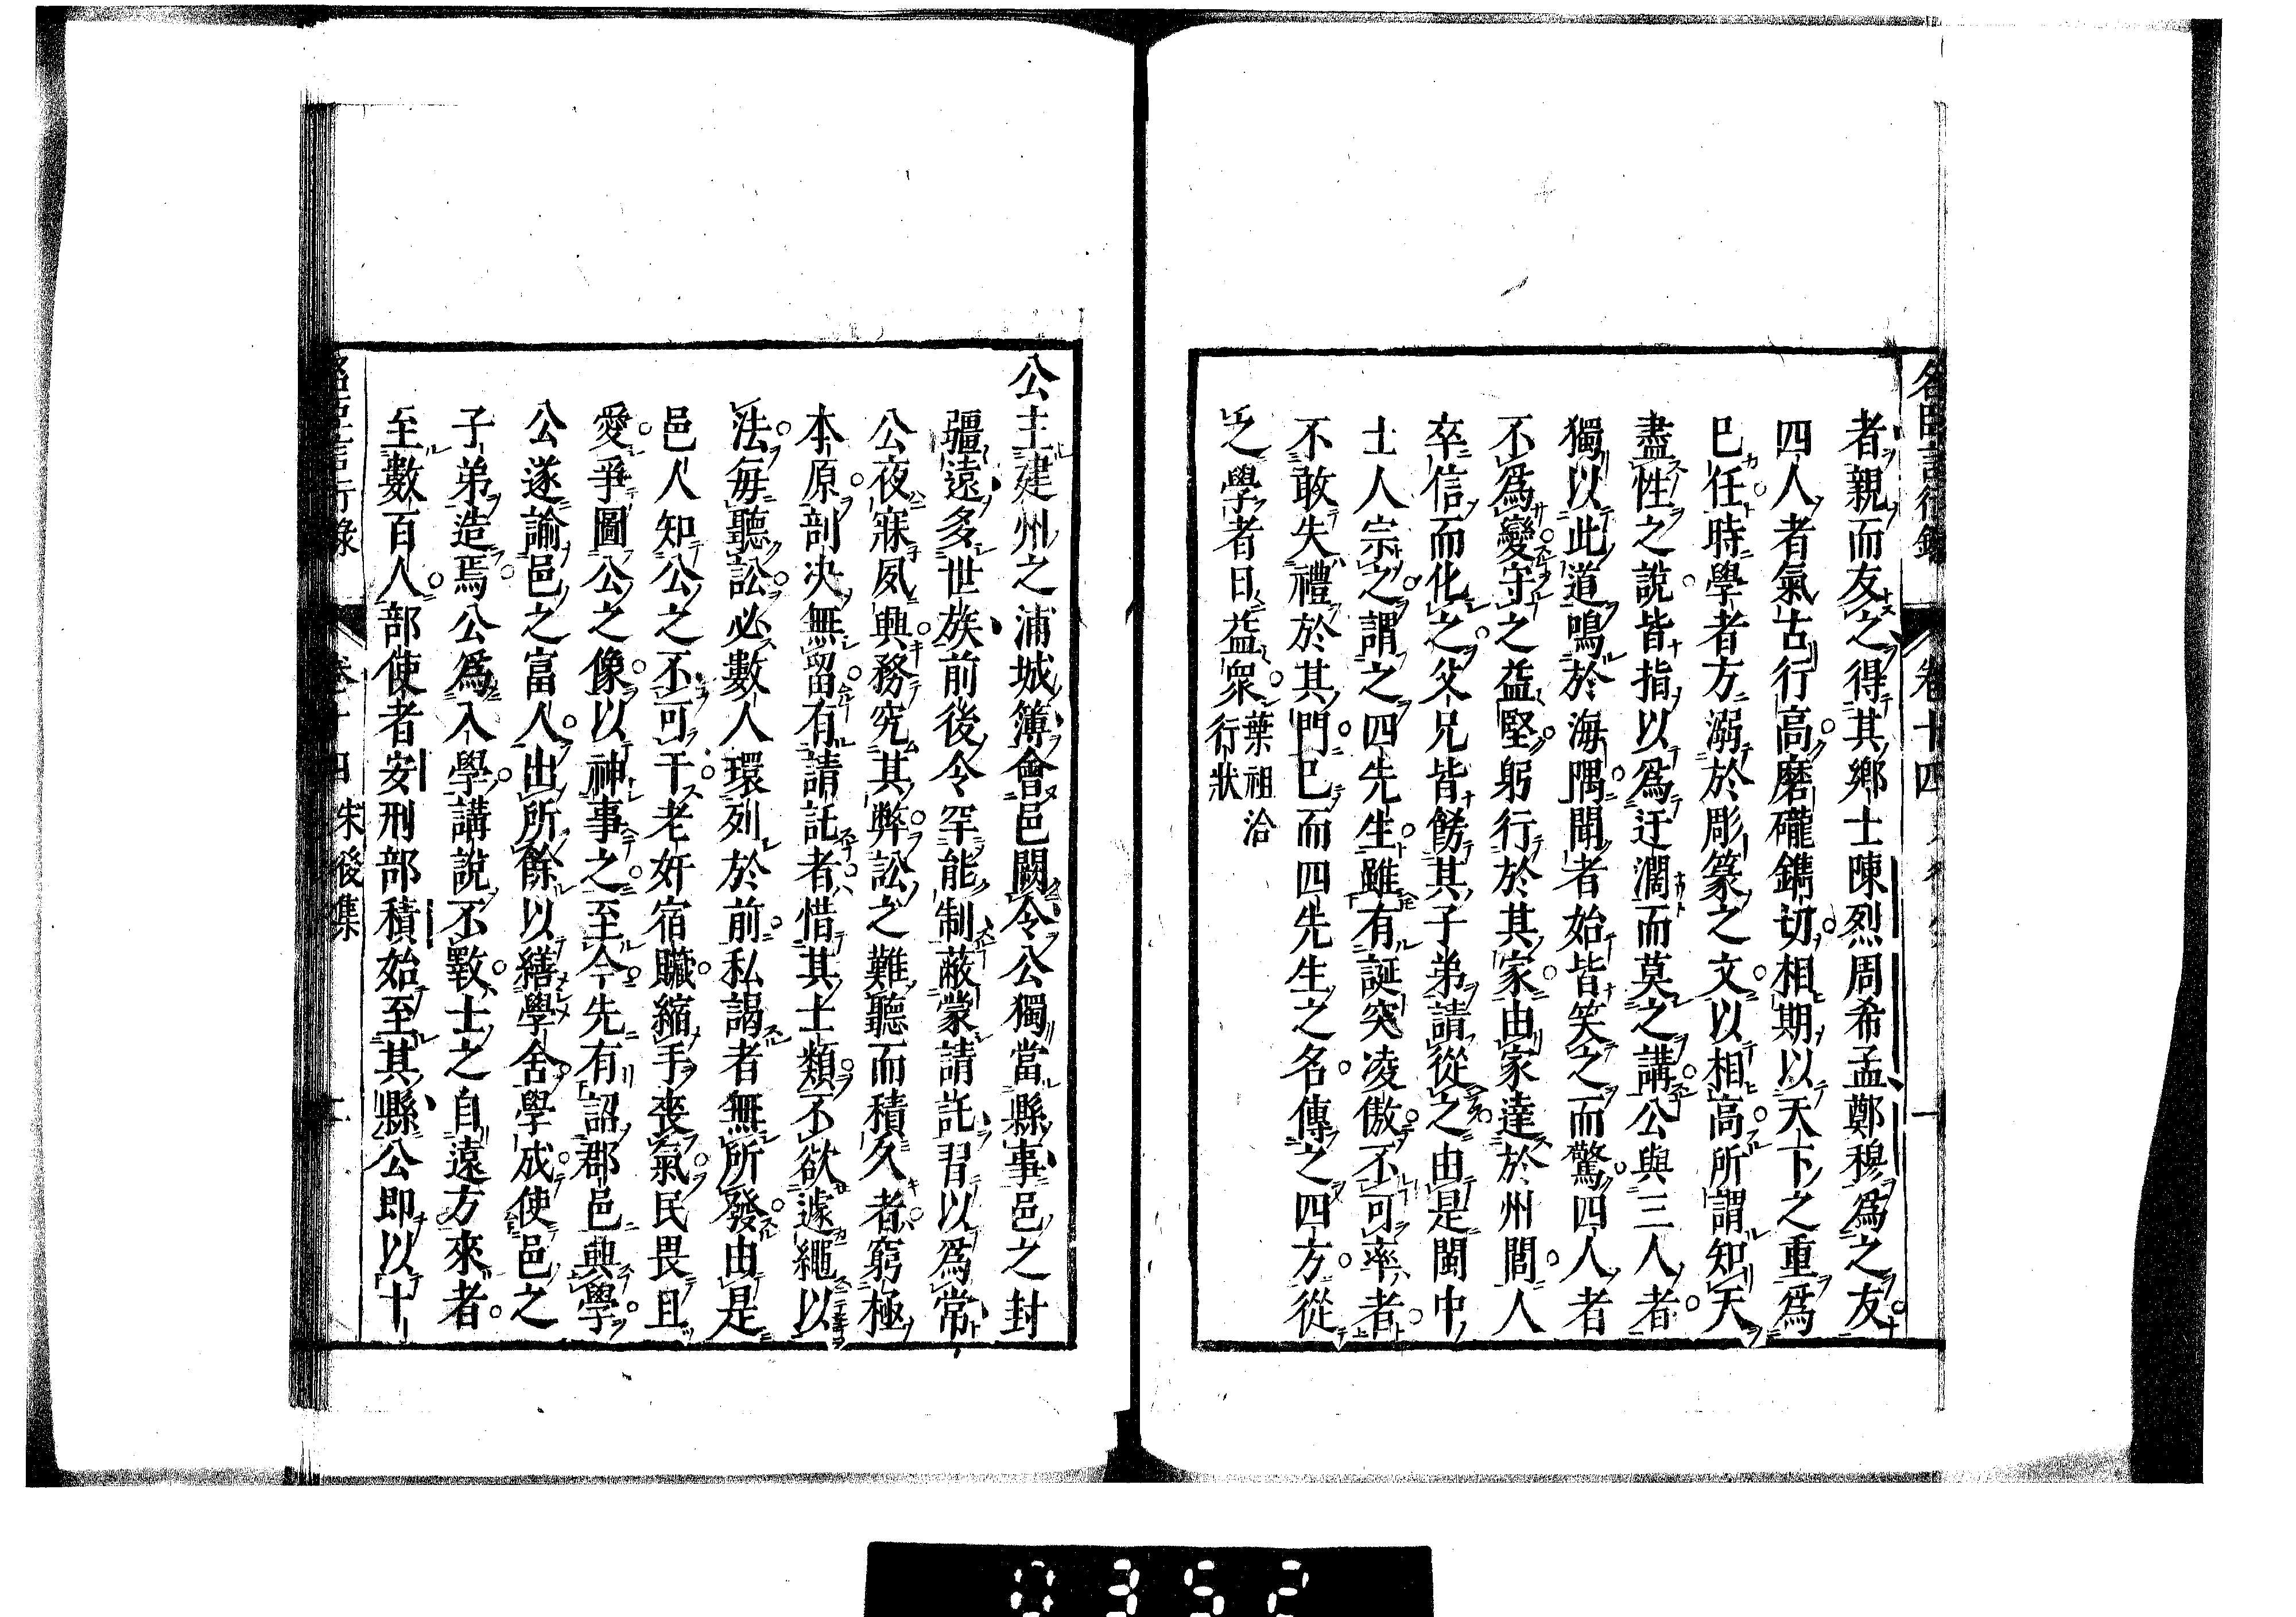 者親而友之得其鄉士陳烈周希孟鄭穆爲之友
四人者氣古行高磨礲鐫切相期以天下之重爲
已任時學者方溺於彫篆之文以相高所謂知天
盡性之說皆指以爲迂濶而莫之講公與三人者
獨以此道鳴於海隅聞者始皆笑之而驚四人者
不爲變守之益堅躬行於其家由家達於州閭人
卒信而化之父兄皆飭其子弟請從之由是閩中
士人宗之謂之四先生雖有誕突凌傲不可率者
不敢失禮於其門已而四先生之名傳之四方從
之學者日益衆葉祖洽行狀
公主建州之浦城簿會邑闕令公獨當縣事邑之封
疆遠多世族前後令罕能制蔽蒙請託習以爲常
公夜寐夙興務究其弊訟之難聽而積久者窮極
本原剖决無留有請託者惜其士類不欲遽繩以
法每聽訟必數人環列於前私謁者無所發由是
邑人知公之不可干老奸宿贓縮手喪氣民畏且
愛爭圖公之像以神事之至今先有詔郡邑興學
公遂諭邑之富人出所餘以繕學舍學成使邑之
子弟造焉公爲入學講說不斁士之自遠方來者
至數百人部使者安刑部積始至其縣公即以十
卷十四
朱後集
0352